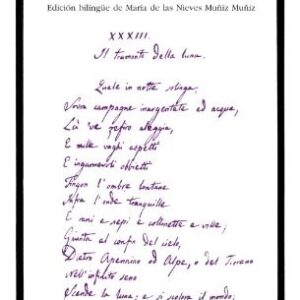 Edición bilingüe de María de las Nieves Muñiz Muñiz
XXXIII.
Il tramonto della luna.
Quale in notte solinga,
Sovra campagne inargentate ed acque,
Là 've zefiro aleggia,
E mille vaghi aspetti
E ingannevoli obbietti
Fingon l'ombre lontane
Infra l'onde tranquille
E rami e siepi e collinette e ville;
Giunta al confin del cielo,
Dietro Apennino od Alpe, o del Tirreno
Nell'infinito seno
Scende la luna; e si scolora il mondo;